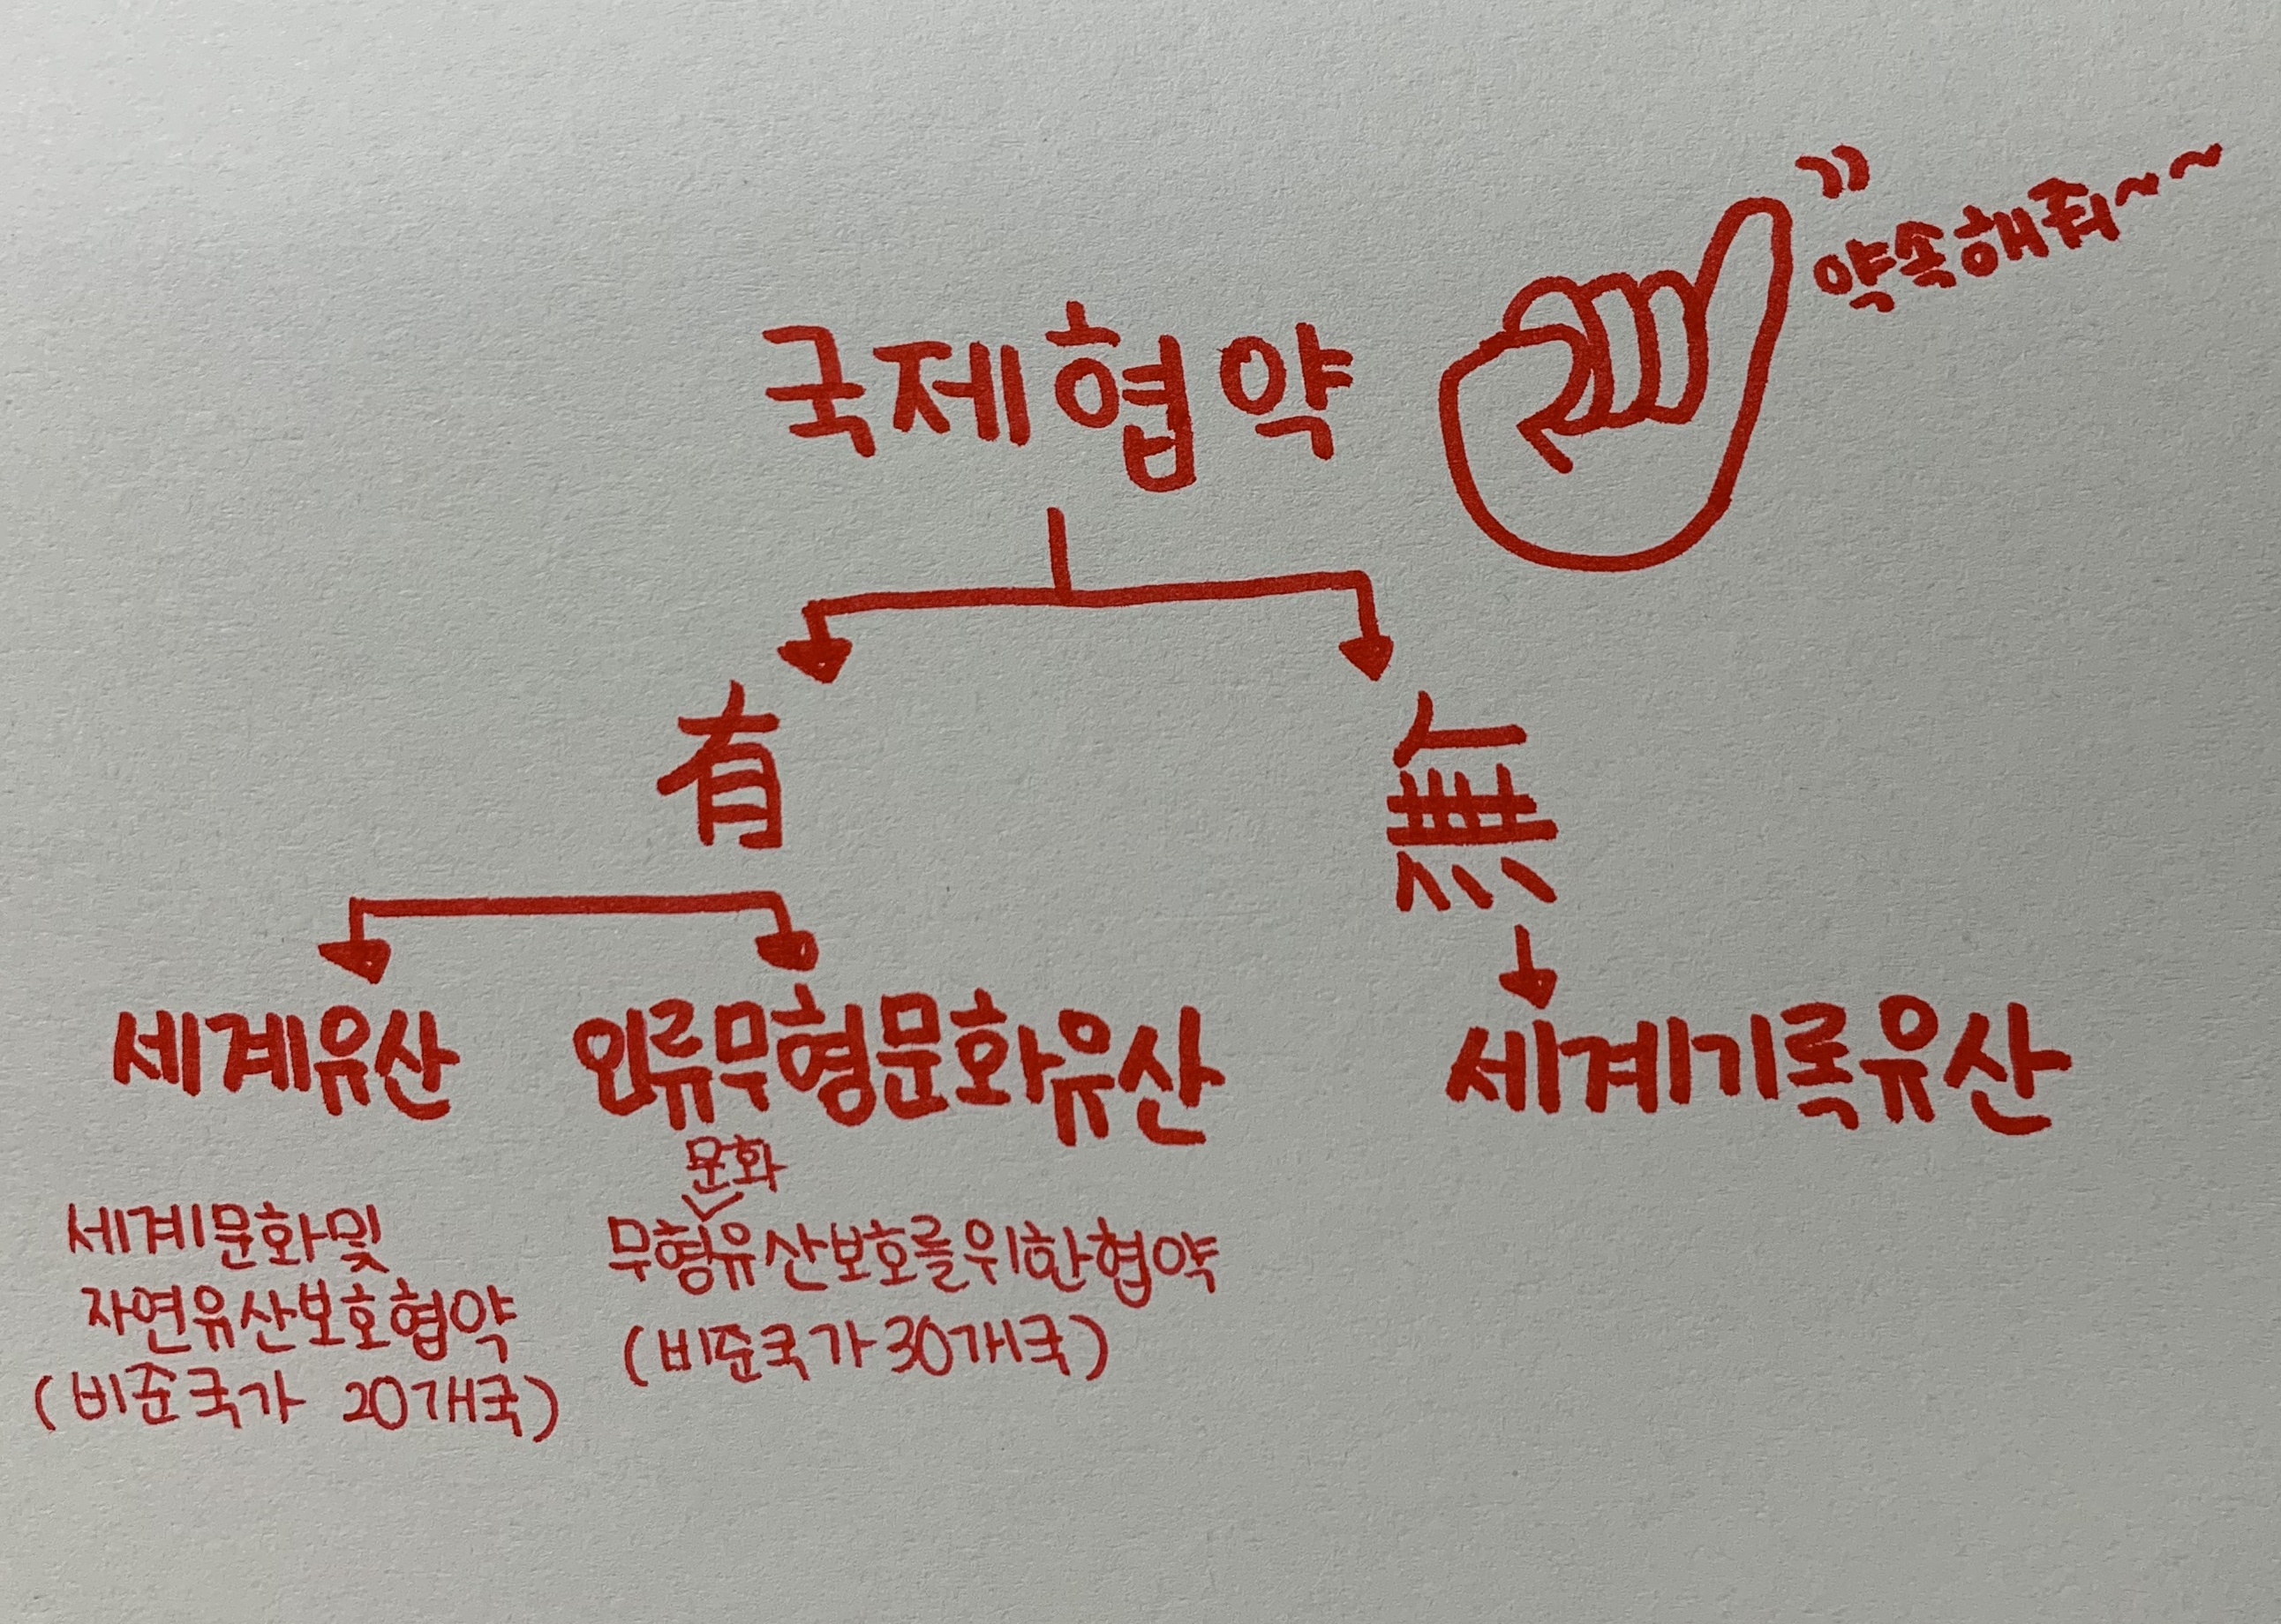 약속해줘~~
국제협약
有
無
세계유산
인류무형문화유산
세계기록유산
세계문화및
자연유산보호협약
(비준국가 20개국)
문화
무형유산보호를위한협약
(비준국가30개국)